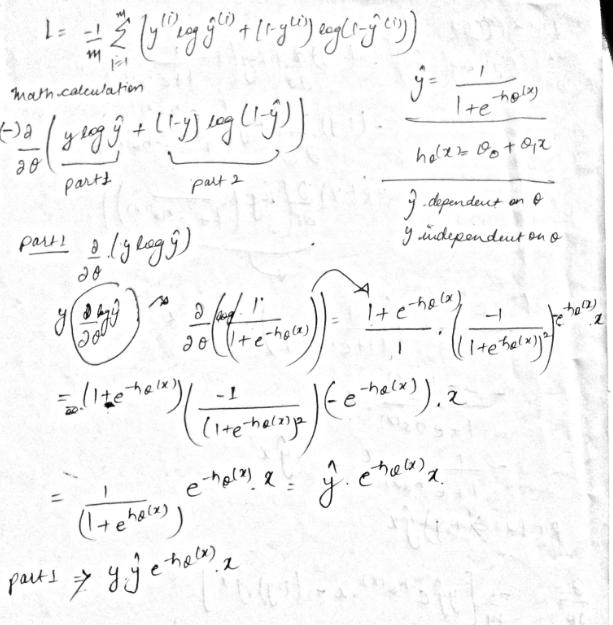 L = -1/m Σ_{i=1}^{m} (y^(i) log ŷ^(i) + (1-y^(i)) log(1-ŷ^(i)))
Math calculation
(-)∂/∂θ (y log ŷ + (1-y) log (1-ŷ))
part 1 part 2
ŷ = 1/(1+e^{-hθ(x)})
hθ(x) = θ₀ + θ₁x
ŷ dependent on θ
y independent on θ
part 1 ∂/∂θ (y log ŷ)
y (∂/∂θ log ŷ) → ∂/∂θ (log (1/(1+e^{-hθ(x)}))) = (1+e^{-hθ(x)})/1 · (-1/(1+e^{-hθ(x)})²) -e^{-hθ(x)}.x
= (1+e^{-hθ(x)}) (-1/(1+e^{-hθ(x)})²) (-e^{-hθ(x)}).x
= 1/(1+e^{hθ(x)}) e^{-hθ(x)}.x = ŷ. e^{-hθ(x)} x.
part 1 ⇒ y.ŷ e^{-hθ(x)}.x